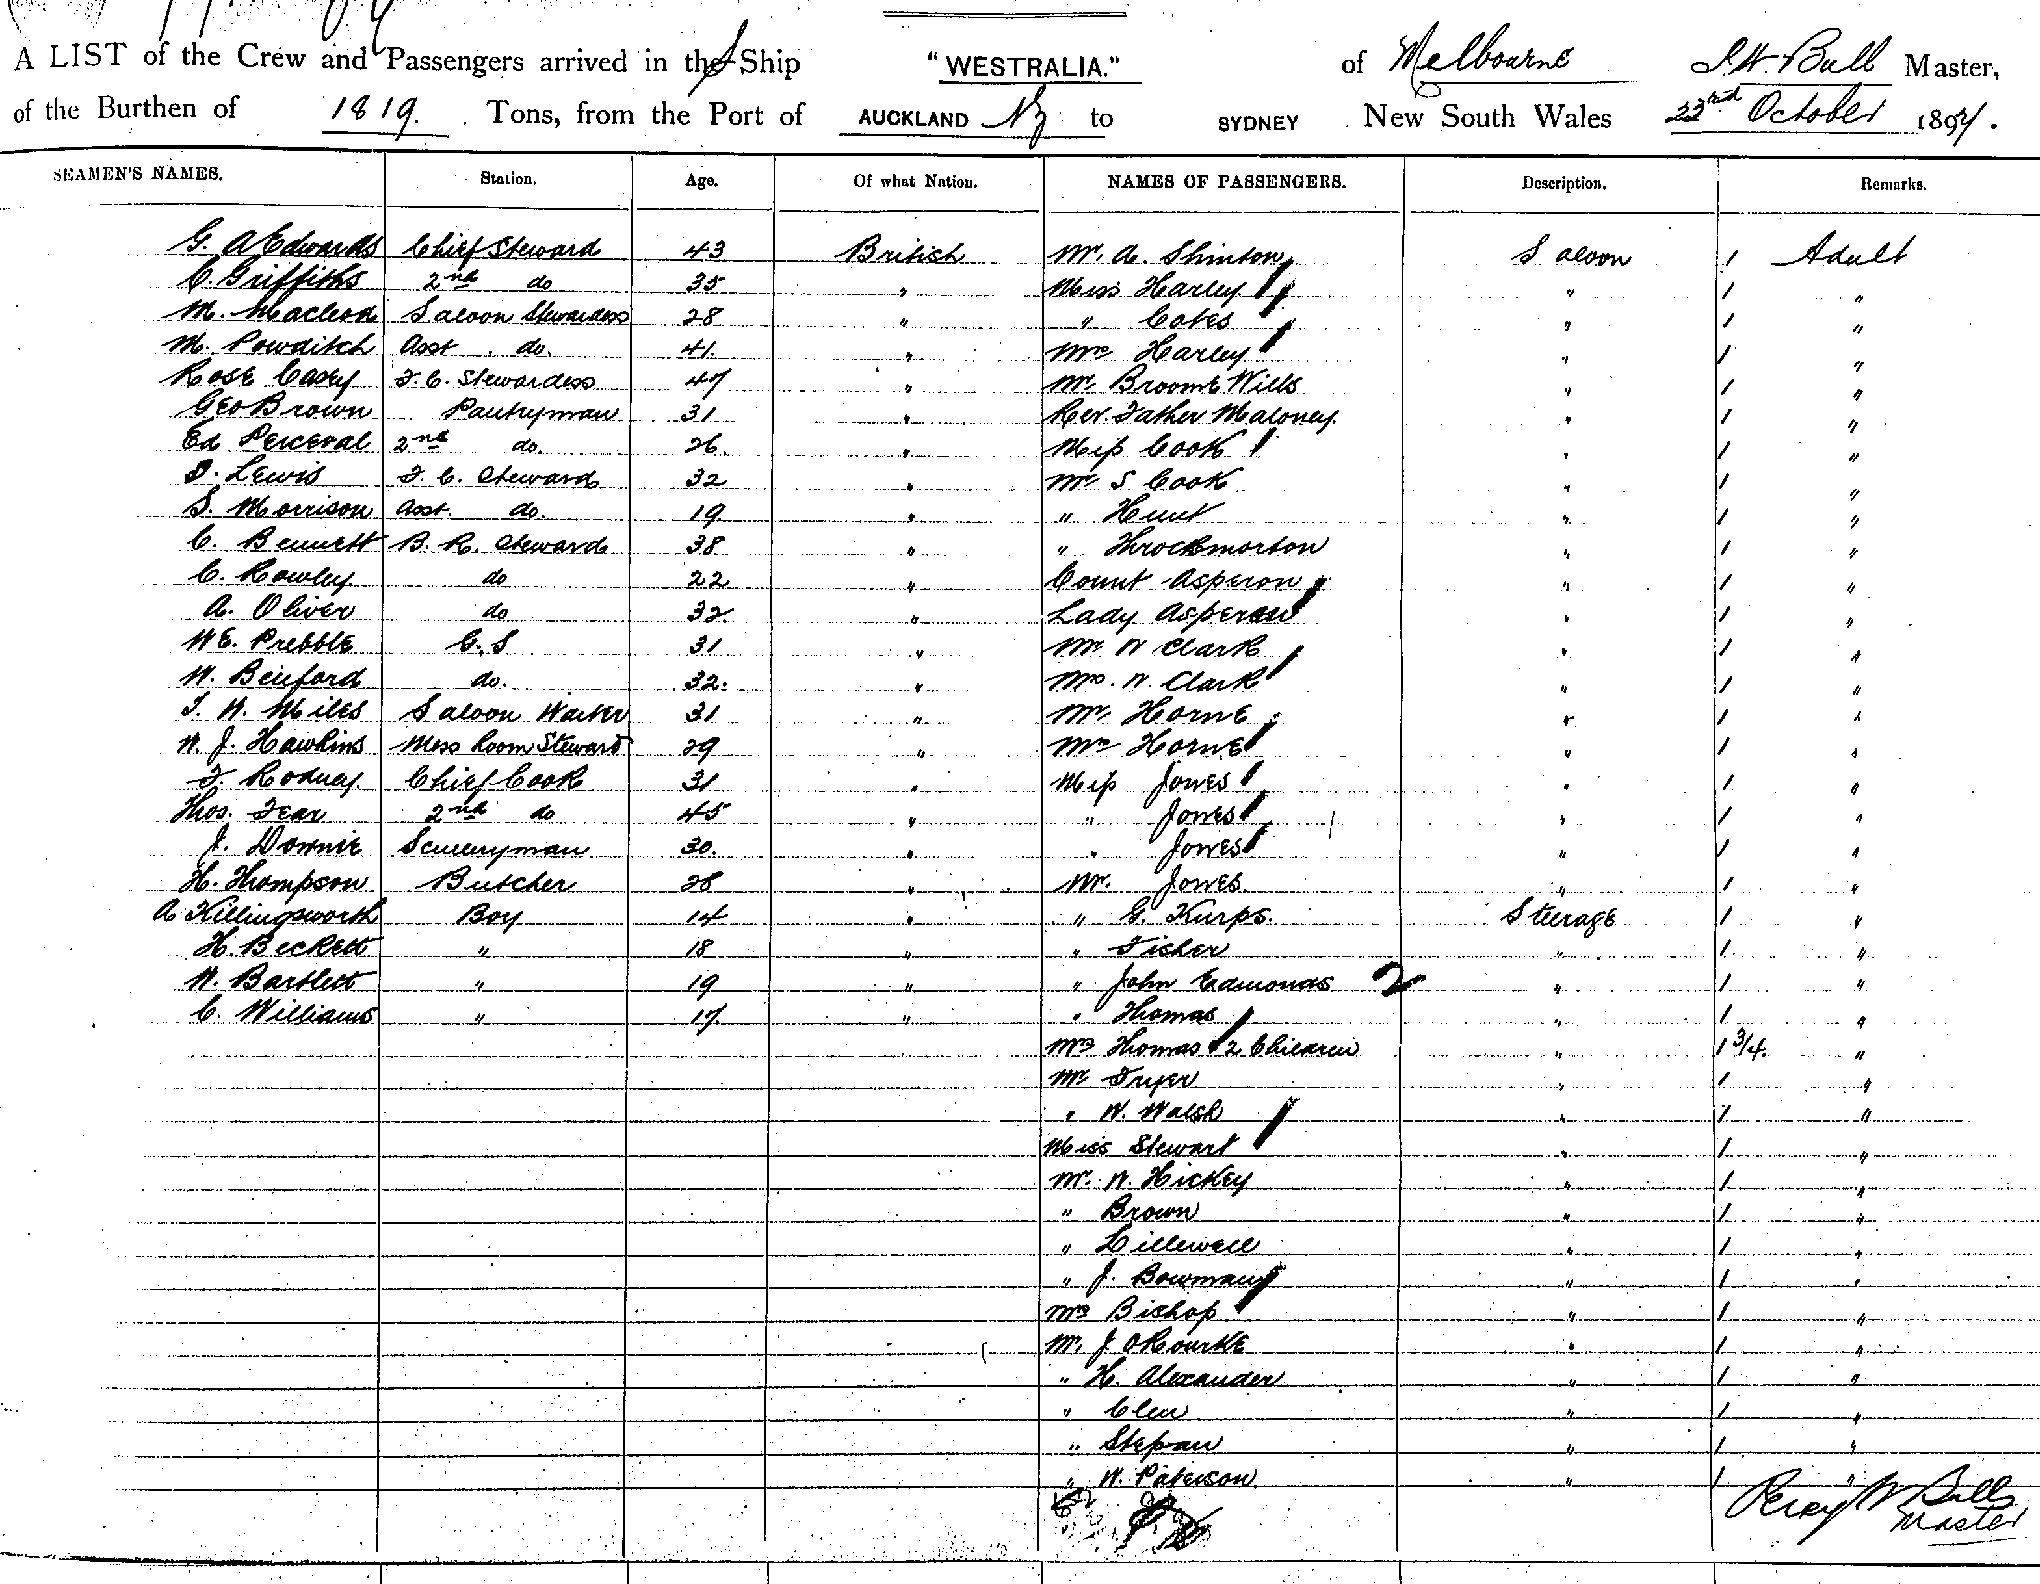 A LIST of the Crew and Passengers arrived in the Ship "WESTRALIA." of Melbourne Bull Master,
of the Burthen of 1819. Tons, from the Port of AUCKLAND NZ to SYDNEY New South Wales 23rd October 1897.
SEAMEN'S NAMES. Station. Age. Of what Nation. NAMES OF PASSENGERS. Description. Remarks.
G. A Edwards Chief Steward 43 British Mr. A. Shinton Saloon 1 Adult
C. Griffiths 2nd do 35 " Miss Harley " 1 "
M. Macleod Saloon Stewardess 28 " " Cotes " 1 "
M. Powditch Asst. do. 41 " Mrs Harley " 1 "
Rose Casey F. C. Stewardess 47 " Mr. Broome Wills " 1 "
Geo Brown Pantryman 31 " Rev. Father Maloney. " 1 "
Ed Perceval 2nd do. 26. " Miss Cook " 1 "
Lewis F. C. Steward 32 " Mr S Cook " 1 "
S. Morrison Asst. do. 19 " " Hunt " 1 "
C. Bennett B. R. Steward 38 " " Throckmorton " 1 "
C. Rowley do 22 " Count Asperon " 1 "
A. Oliver do 32. " Lady Asperon " 1 "
W E. Prebble G. S 31 " Mr. W Clark " 1 "
W. Benford do. 32. " Mrs. W. Clark " 1 "
J. W. Miles Saloon Waiter 31 " Mr. Horne " 1 "
W. J. Hawkins Mess Room Steward 29 " Mrs Horne " 1 "
F. Rodney Chief Cook 31 " Miss Jones " 1 "
Thos. Fear 2nd do 45 " " Jones " 1 "
J. Downie Sculleryman 30. " " Jones " 1 "
H. Thompson Butcher 28 " Mr. Jones. " 1 "
A Killingsworth Boy 14 " " G. Kurps. Steerage 1 "
H. Beckett " 18 " " Fisher " 1 "
W. Bartlett " 19 " " John Edmonds 2 " 1 "
C. Williams " 17. " " Thomas " 1 "
Mrs Thomas 2 Children " 1 3/4. "
Mr Fryer " 1 "
" W. Walsh " 1 "
Miss Stewart " 1 "
Mr. W. Hickey " 1 "
" Brown " 1 "
" Lillewell " 1 "
" J. Bowman " 1 "
Mrs Bishop " 1 "
Mr. J ORourke " 1 "
" H. Alexander " 1 "
" Clew " 1 "
" Stepan " 1 "
" W. Paterson " 1 "
Percy W Bull
Master